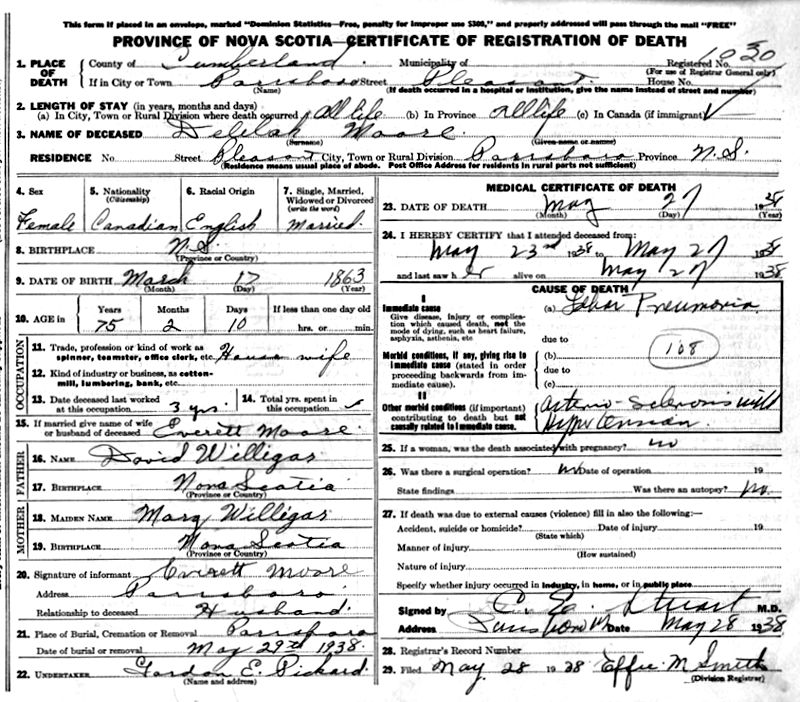 This form if placed in an envelope, marked "Dominion Statistics—Free, penalty for improper use $300," and properly addressed will pass through the mail "FREE"
PROVINCE OF NOVA SCOTIA—CERTIFICATE OF REGISTRATION OF DEATH
1. PLACE OF DEATH County of Cumberland Municipality of Registered No. 1030
(For use of Registrar General only)
If in City or Town Parrsboro Street Pleasant House No.
(Name) (If death occurred in a hospital or institution, give the name instead of street and number)
2. LENGTH OF STAY (in years, months and days)
(a) In City, Town or Rural Division where death occurred All life (b) In Province All life (c) In Canada (if immigrant) ✓
3. NAME OF DECEASED Delilah Moore
(Surname) (Given name or names)
RESIDENCE No. Street Pleasant City, Town or Rural Division Parrsboro Province N.S.
(Residence means usual place of abode. Post Office Address for residents in rural parts not sufficient)
4. Sex 5. Nationality (Citizenship) 6. Racial Origin 7. Single, Married, Widowed or Divorced (write the word)
Female Canadian English Married.
8. BIRTHPLACE N.S.
(Province or Country)
9. DATE OF BIRTH March 17 1863
(Month) (Day) (Year)
10. AGE in Years Months Days If less than one day old
75 2 10 hrs. or min.
OCCUPATION
11. Trade, profession or kind of work as spinner, teamster, office clerk, etc. House wife
12. Kind of industry or business, as cotton-mill, lumbering, bank, etc.
13. Date deceased last worked at this occupation 3 yrs. 14. Total yrs. spent in this occupation ✓
15. If married give name of wife or husband of deceased Everett Moore.
FATHER
16. NAME David Willigar
17. BIRTHPLACE Nova Scotia
(Province or Country)
MOTHER
18. MAIDEN NAME Mary Willigar
19. BIRTHPLACE Nova Scotia
(Province or Country)
20. Signature of informant Everett Moore
Address Parrsboro
Relationship to deceased Husband.
21. Place of Burial, Cremation or Removal Parrsboro
Date of burial or removal May 29th 1938.
22. UNDERTAKER Gordon E. Pickard
(Name and address)
MEDICAL CERTIFICATE OF DEATH
23. DATE OF DEATH May 27 1938
(Month) (Day) (Year)
24. I HEREBY CERTIFY that I attended deceased from:
May 23rd 1938 to May 27 1938
and last saw h er alive on May 27 1938
CAUSE OF DEATH
I
Immediate cause (a) Lobar Pneumonia
Give disease, injury or complication which caused death, not the mode of dying, such as heart failure, asphyxia, asthenia, etc
due to
Morbid conditions, if any, giving rise to immediate cause (stated in order proceeding backwards from immediate cause).
(b) 108
due to
(c)
II
Other morbid conditions (if important) contributing to death but not causally related to immediate cause.
Arterio-Sclerosis with
Hypertension.
25. If a woman, was the death associated with pregnancy? no
26. Was there a surgical operation? no Date of operation 19
State findings Was there an autopsy? no.
27. If death was due to external causes (violence) fill in also the following:—
Accident, suicide or homicide? Date of injury 19
(State which)
Manner of injury
(How sustained)
Nature of injury
Specify whether injury occurred in industry, in home, or in public place
Signed by C. E. Stuart M.D.
Address Date May 28 1938
28. Registrar's Record Number
29. Filed May 28 1938 Effie M Smith
(Division Registrar)